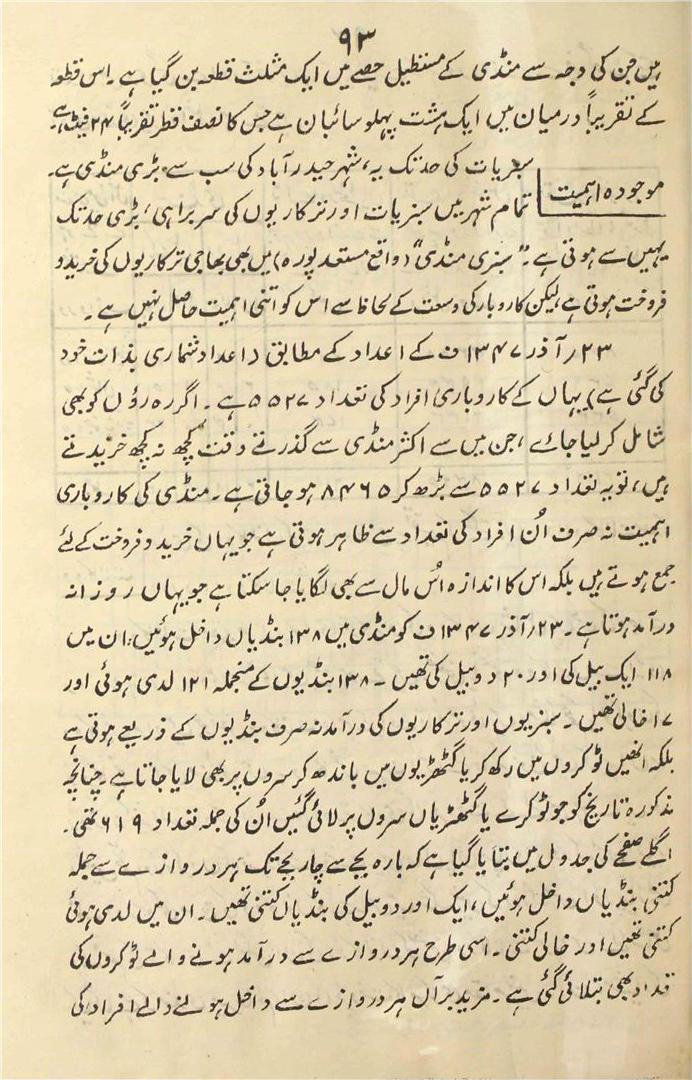 ۹۳
ہیں جن کی وجہ سے منڈی کے مستطیل حصے میں ایک مثلث قطعہ بن گیا ہے۔ اس قطعہ
کے تقریباً درمیان میں ایک ہشت پہلو سائبان ہے جس کا نصف قطر تقریباً ۲۴ فیٹ ہے۔
سبزیات کی حد تک یہ، شہر حیدرآباد کی سب سے بڑی منڈی ہے۔
موجودہ اہمیت
تمام شہر میں سبزیات اور ترکاریوں کی سربراہی، بڑی حد تک
یہیں سے ہوتی ہے۔ "سبزی منڈی" (واقع مستعد پورہ) میں بھی بھاجی ترکاریوں کی خرید و
فروخت ہوتی ہے لیکن کاروبار کی وسعت کے لحاظ سے اس کو اتنی اہمیت حاصل نہیں ہے۔
۲۳؍ آذر ۱۳۴۷ ف کے اعداد کے مطابق (اعداد شماری بذات خود
کی گئی ہے) یہاں کے کاروباری افراد کی تعداد ۵۵۲۷ ہے۔ اگر رہ رؤں کو بھی
شامل کر لیا جائے، جن میں سے اکثر منڈی سے گذرتے وقت کچھ نہ کچھ خریدتے
ہیں، تو یہ تعداد ۵۵۲۷ سے بڑھ کر ۸۴۶۵ ہو جاتی ہے۔ منڈی کی کاروباری
اہمیت نہ صرف اُن افراد کی تعداد سے ظاہر ہوتی ہے جو یہاں خرید و فروخت کے لئے
جمع ہوتے ہیں بلکہ اس کا اندازہ اُس مال سے بھی لگایا جا سکتا ہے جو یہاں روزانہ
درآمد ہوتا ہے۔ ۲۳؍ آذر ۱۳۴۷ ف کو منڈی میں ۱۳۸ بنڈیاں داخل ہوئیں؛ ان میں
۱۱۸ ایک بیل کی اور ۲۰ دو بیل کی تھیں۔ ۱۳۸ بنڈیوں کے منجملہ ۱۲۱ لدی ہوئی اور
۱۷ خالی تھیں۔ سبزیوں اور ترکاریوں کی درآمد نہ صرف بنڈیوں کے ذریعے ہوتی ہے
بلکہ انھیں ٹوکروں میں رکھ کر یا گٹھڑیوں میں باندھ کر سروں پر بھی لایا جاتا ہے۔ چنانچہ
مذکورہ تاریخ کو جو ٹوکرے یا گٹھڑیاں سروں پر لائی گئیں اُن کی جملہ تعداد ۶۱۹ تھی۔
اگلے صفحے کی جدول میں بتایا گیا ہے کہ بارہ بجے سے چار بجے تک ہر دروازے سے جملہ
کتنی بنڈیاں داخل ہوئیں، ایک اور دو بیل کی بنڈیاں کتنی تھیں۔ ان میں لدی ہوئی
کتنی تھیں اور خالی کتنی۔ اسی طرح ہر دروازے سے درآمد ہونے والے ٹوکروں کی
تعداد بھی بتلائی گئی ہے۔ مزید برآں ہر دروازے سے داخل ہونے والے افراد کی